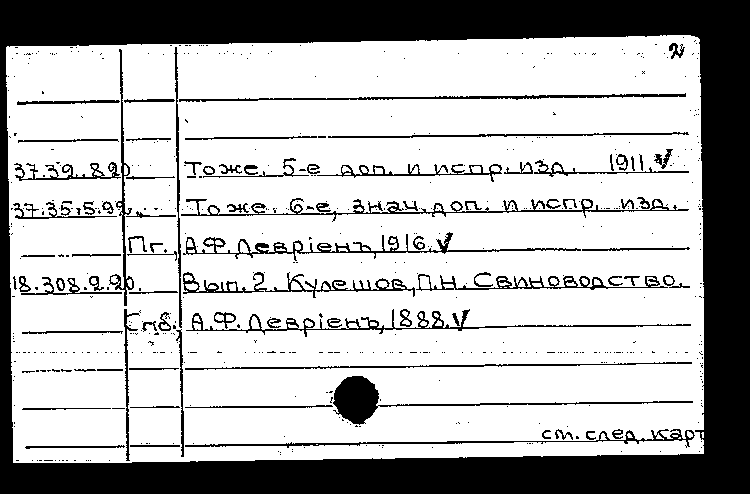 2
37.39.8.90 Тоже. 5-е доп. и испр. изд. 1911. V
37.35.5.99 Тоже. 6-е, знач. доп. и испр. изд.
Пг., А.Ф. Девріенъ, 1916. V
18.308.2.90. Вып. 2. Кулешов, П.Н. Свиноводство.
Спб., А.Ф. Девріенъ, 1888. V
ст. след. карт